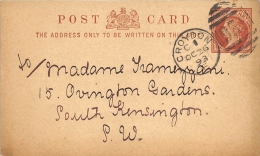 POST CARD
THE ADDRESS ONLY TO BE WRITTEN ON THIS
CROYDON
OC 26
93
Madame Tramezzani.
15. Ovington Gardens.
South Kensington.
S.W.